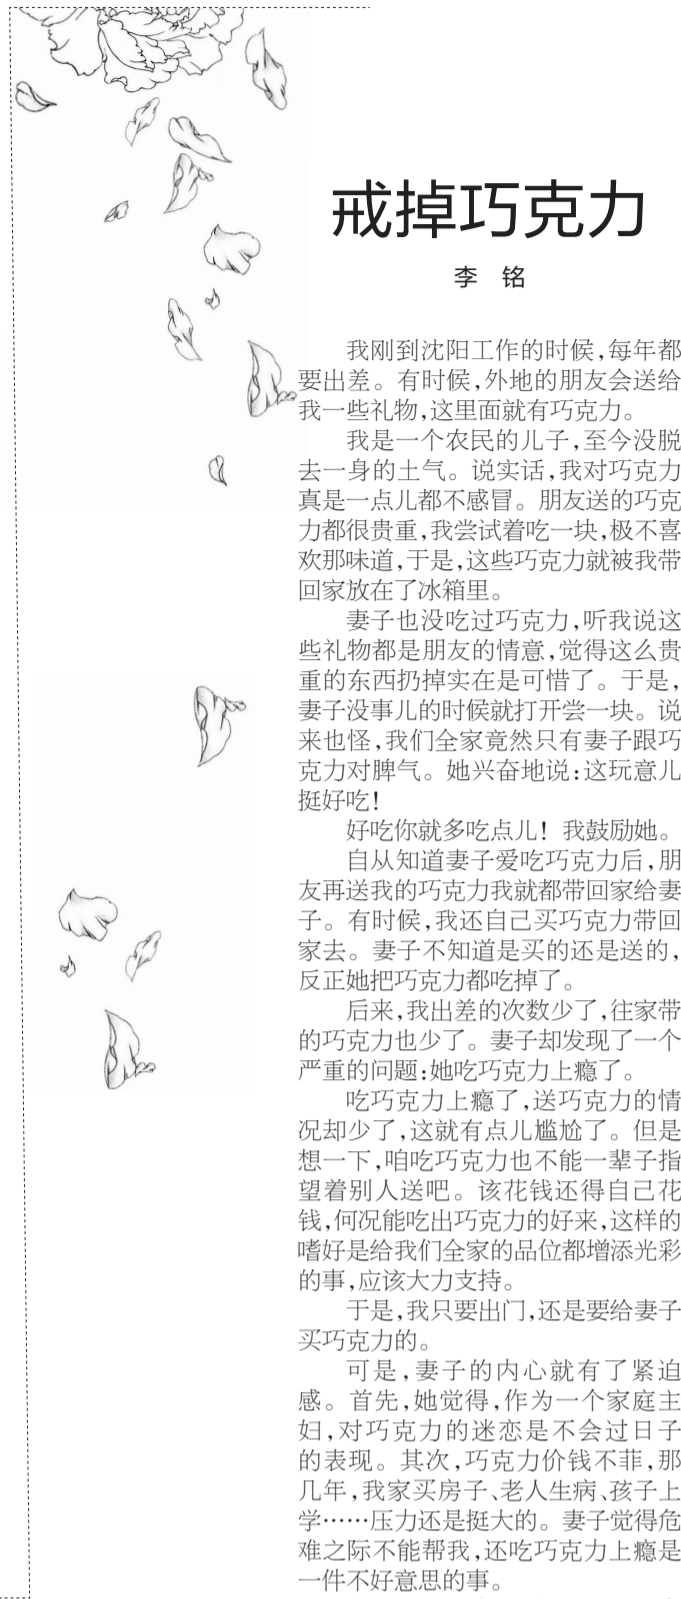 戒掉巧克力
李 铭
我刚到沈阳工作的时候,每年都
要出差。有时候,外地的朋友会送给
我一些礼物,这里面就有巧克力。
我是一个农民的儿子,至今没脱
去一身的土气。说实话,我对巧克力
真是一点儿都不感冒。朋友送的巧克
力都很贵重,我尝试着吃一块,极不喜
欢那味道,于是,这些巧克力就被我带
回家放在了冰箱里。
妻子也没吃过巧克力,听我说这
些礼物都是朋友的情意,觉得这么贵
重的东西扔掉实在是可惜了。于是,
妻子没事儿的时候就打开尝一块。说
来也怪,我们全家竟然只有妻子跟巧
克力对脾气。她兴奋地说:这玩意儿
挺好吃!
好吃你就多吃点儿! 我鼓励她。
自从知道妻子爱吃巧克力后,朋
友再送我的巧克力我就都带回家给妻
子。有时候,我还自己买巧克力带回
家去。妻子不知道是买的还是送的,
反正她把巧克力都吃掉了。
后来,我出差的次数少了,往家带
的巧克力也少了。妻子却发现了一个
严重的问题:她吃巧克力上瘾了。
吃巧克力上瘾了,送巧克力的情
况却少了,这就有点儿尴尬了。但是
想一下,咱吃巧克力也不能一辈子指
望着别人送吧。该花钱还得自己花
钱,何况能吃出巧克力的好来,这样的
嗜好是给我们全家的品位都增添光彩
的事,应该大力支持。
于是,我只要出门,还是要给妻子
买巧克力的。
可是,妻子的内心就有了紧迫
感。首先,她觉得,作为一个家庭主
妇,对巧克力的迷恋是不会过日子
的表现。其次,巧克力价钱不菲,那
几年,我家买房子、老人生病、孩子上
学……压力还是挺大的。妻子觉得危
难之际不能帮我,还吃巧克力上瘾是
一件不好意思的事。